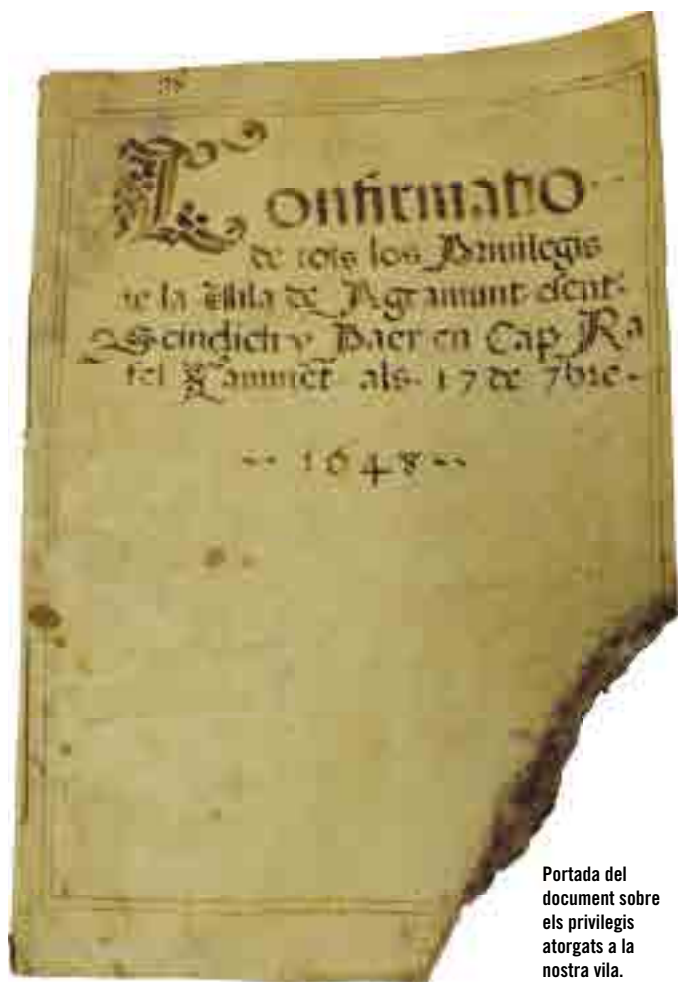 Confirmatio
de tots los Privilegis
de la Vila de Agramunt essent
Scindich y Paer en Cap Ra
fel als 17 de 7bre
1648
Portada del
document sobre
els privilegis
atorgats a la
nostra vila.